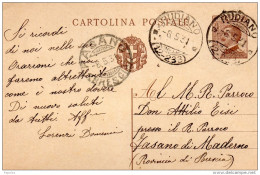 CARTOLINA POSTALE
RUDIANO
(BRESCIA)
RUDIANO
Si ricordi
di noi nelle sue
Orazioni che noi
faremo altrettanto
come è nostro dovere
Di nuovo saluti
da tutti
Lorenzi Domenica
Al M. R. Parroco
Don Attilio
presso il R. Parroco
Fasano di Maderno
Provincia di Brescia